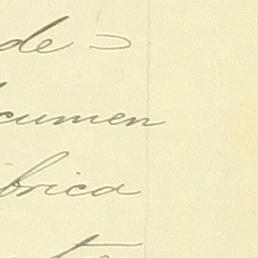 de =
cumen
brica